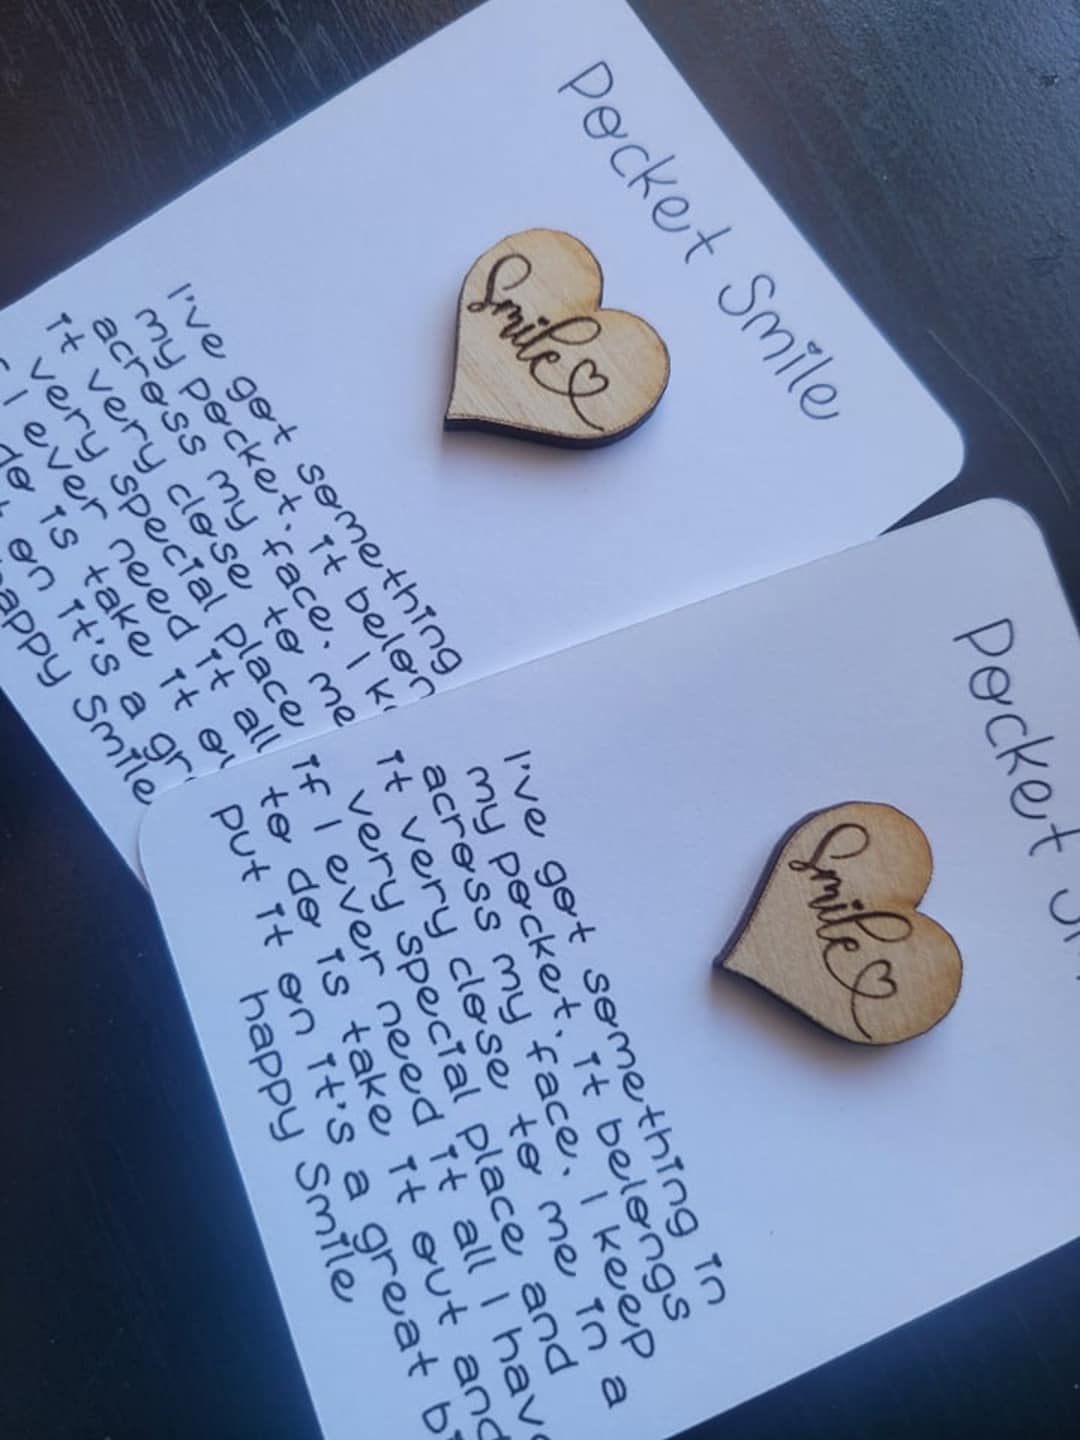 Pocket Smile
Smile
I've got something
my pocket. it
across my face. I
it very close to me
very special place
I ever need it all
do is take it
on it's a
happy Smile
Pocket
Smile
I've got something in
my pocket. it belongs
across my face. I keep
it very close to me in a
very special place and
if I ever need it all I have
to do is take it out and
put it on it's a great
happy Smile